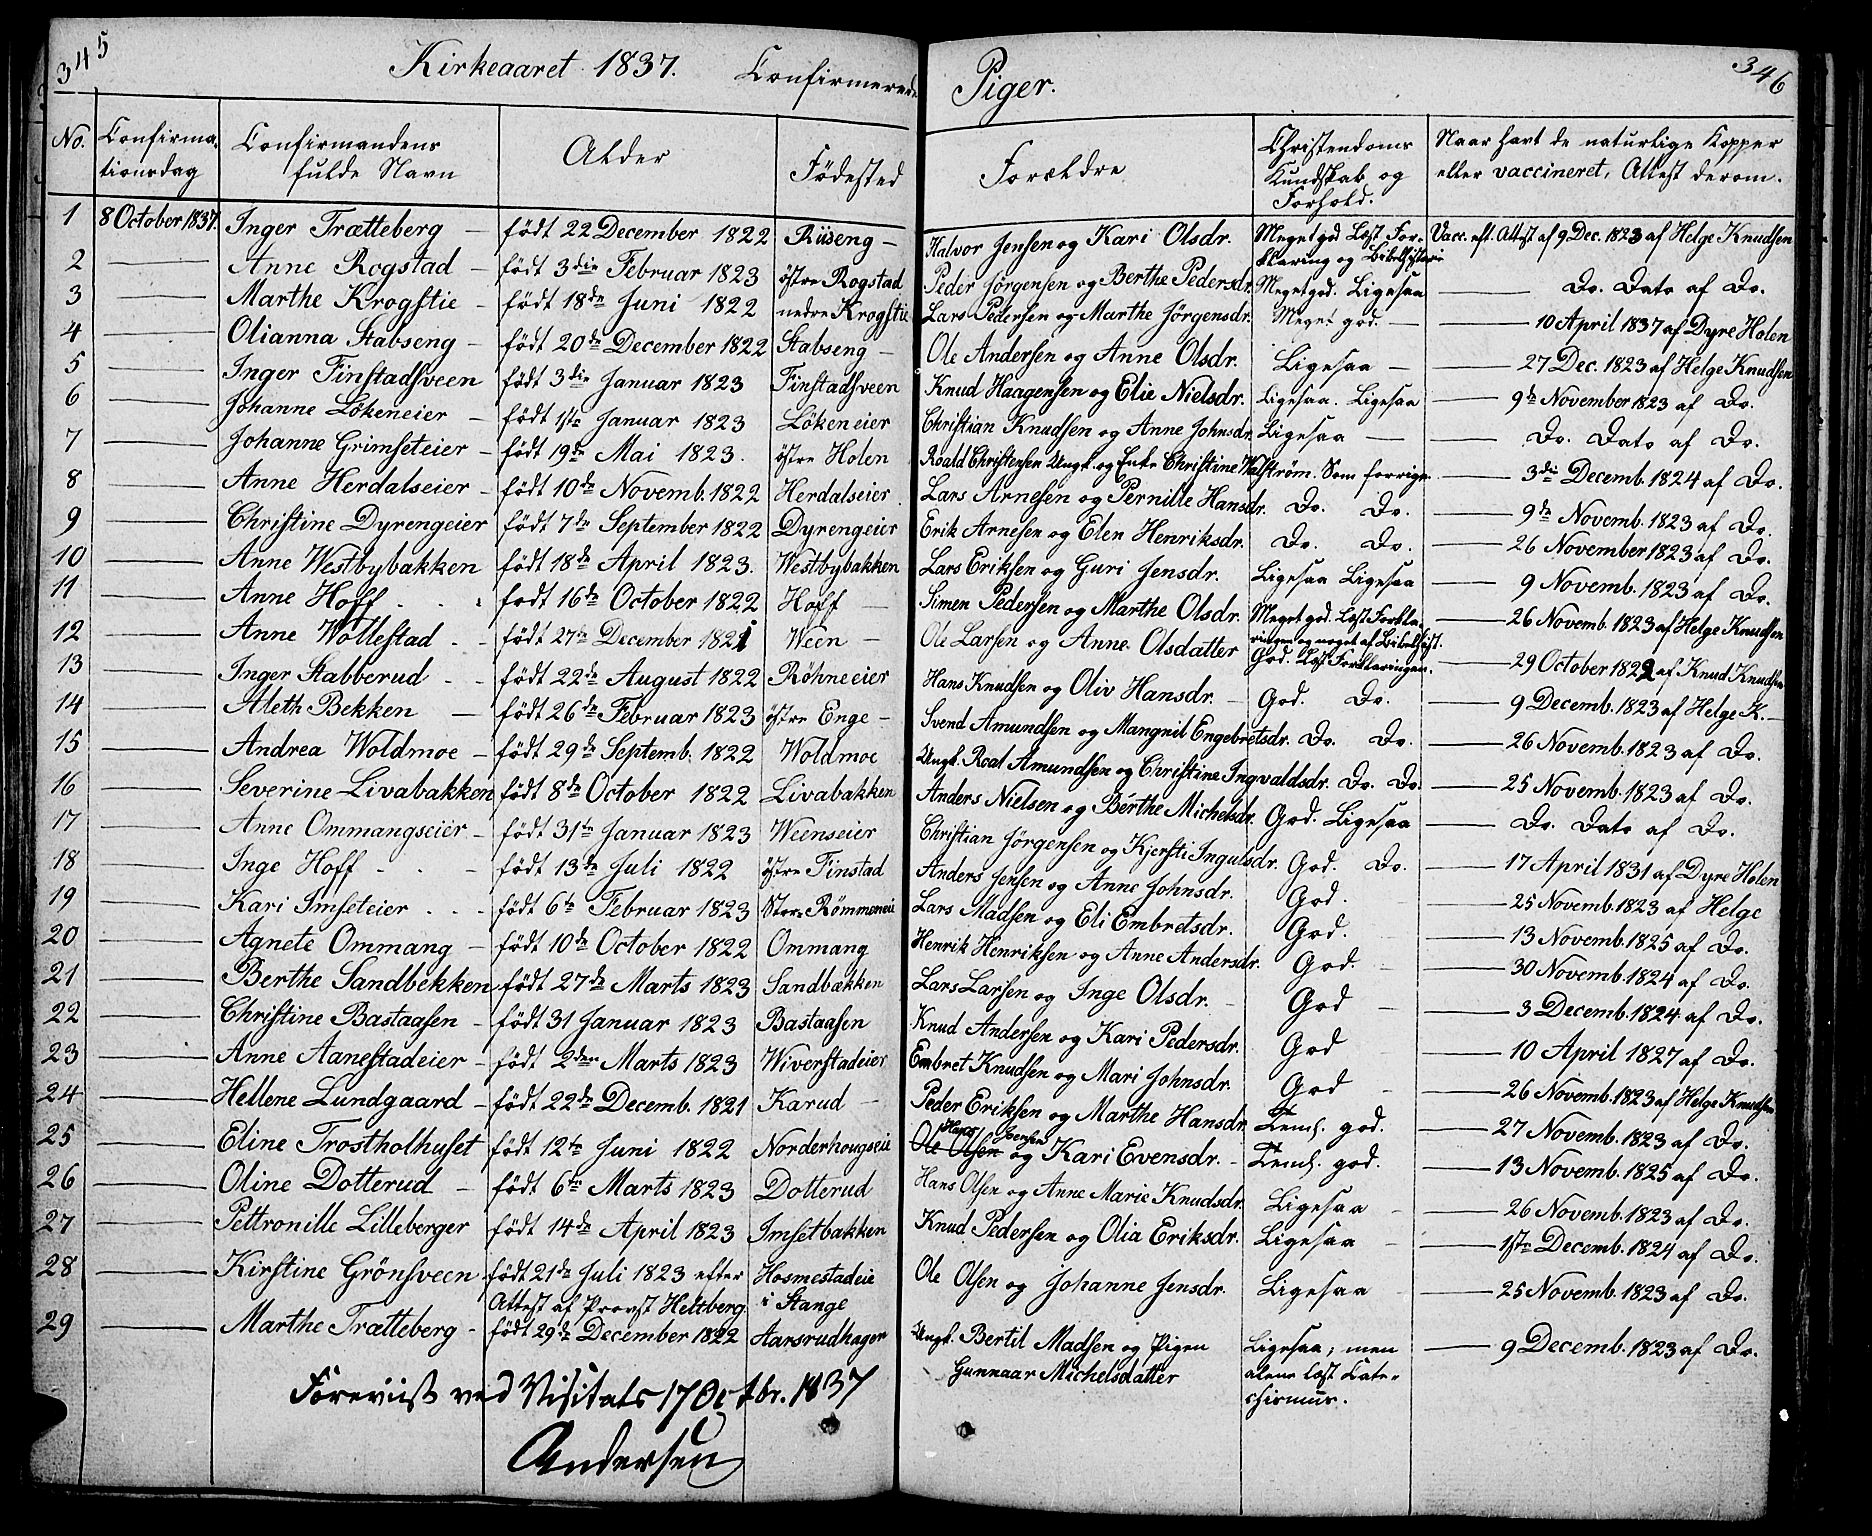 345
Kirkeaaret 1837. Confirmerede Piger.
346
No. Confirmationsdag Confirmandens fulde Navn Alder Födested Forældre Christendoms Kundskab og Forhold. Naar havt de naturlige Kopper eller vaccineret, Attest derom.
1 8 October 1837. Inger Trætteberg — födt 22 December 1822 Rüseng — Halvor Jensen og Kari Olsdr. Meget god Læst Forklaring og Bibelhistorie Vacc. eft. Attest af 9 Dec. 1823 af Helge Knudsen
2 — Anne Rogstad — födt 3die Februar 1823 östre Rogstad Peder Jörgensen og Berthe Pedersdr. Meget god. Ligesaa — Do. Dato af Do.
3 — Marthe Krogstie — födt 18de Juni 1822 nedre Krogstie Lars Pedersen og Marthe Jörgensdr. Meget god. — — 10 April 1837 af Dyre Holen
4 — Olianna Stabseng — födt 20de December 1822 Stabseng — Ole Andersen og Anne Olsdr. Ligesaa — — 27 Dec. 1823 af Helge Knudsen
5 — Inger Finstadsveen födt 3die Januar 1823 Finstadsveen Knud Haagensen og Elie Nielsdr. Ligesaa. Ligesaa — 9de November 1823 af Do.
6 — Johanne Lökeneier — födt 1ste Januar 1823 Lökeneier Christian Knudsen og Anne Johnsdr. Ligesaa — — Do. Dato af Do.
7 — Johanne Grimseteier — födt 19de Mai 1823. östre Holen Roald Christensen Ungk. og Enke Christine Walström. Som forrige — 3die Decemb. 1824 af Do.
8 — Anne Herdalseier — födt 10de Novemb. 1822 Herdalseier Lars Arnesen og Pernille Hansdr. Do. Do. — 9de Novemb. 1823 af Do.
9 — Christine Dyrengeier födt 7de September 1822 Dyrengeier Erik Arnesen og Elen Henriksdr. Do. Do. — 26 November 1823 af Do.
10 — Anne Westbybakken födt 18de April 1823. Westbybakken Lars Eriksen og Guri Jensdr. Ligesaa Ligesaa — 9 Novemb. 1823 af Do.
11 — Anne Hoff . . . födt 16de October 1822 Hoff — Simen Pedersen og Marthe Olsdr. Meget god. Læst Forklaringen og noget af Bibelhist. — 26 Novemb. 1823 af Helge Knudsen
12 — Anne Wollestad . . födt 27de December 1821 Ween — Ole Larsen og Anne Olsdatter God. Læst Forklaringen. — 29 October 1822 af Knud Knudsen
13 — Inger Stabberud . . födt 22de August 1822 Röhneeier Hans Knudsen og Oliv Hansdr. — God. Do. — 9 Decemb. 1823 af Helge K. —
14 — Aleth Bekken — födt 26de Februar 1823 östre Enge — Svend Amundsen og Mangnil Engebretsdr. Do. Do. — 26 Novemb. 1823 af Do.
15 — Andrea Woldmoe — födt 29de Septemb. 1822 Woldmoe Ungk. Roal Amundsen og Christine Ingvaldsdr. Do. Do. — 25 Novemb. 1823 af Do.
16 — Severine Livabakken födt 8de October 1822 Livabakken Anders Nielsen og Berthe Michelsdr. God. Ligesaa — Do. Dato af Do.
17 — Anne Ommangseier — födt 31te Januar 1823 Weenseier Christian Jörgensen og Kjersti Ingulsdr. God. Do. — 17 April 1831 af Dyre Holen
18 — Inge Hoff . . — födt 13de Juli 1822 östre Finstad Anders Jensen og Anne Johnsdr. God. — 25 Novemb. 1823 af Helge
19 — Kari Imseteier . . . födt 6te Februar 1823 Store Römmeneie Lars Madsen og Eli Embretsdr. God. — 13 Novemb. 1825 af Do.
20 — Agnete Ommang — födt 10de October 1822 Ommang Henrik Henriksen og Anne Andersdr. God. — — 30 Novemb. 1824 af Do.
21 — Berthe Sandbekken födt 27de Marts 1823 Sandbækken Lars Larsen og Inge Olsdr. — God — — 3 Decemb. 1824 af Do.
22 — Christine Bastaasen — födt 31 Januar 1823 Bastaasen Knud Andersen og Kari Pedersdr. God — 10 April 1827 af Do.
23 — Anne Aanestadeier — födt 2den Marts 1823 Wiverstadeier Embret Knudsen og Mari Johnsdr. God — — 26 Novemb. 1823 af Helge Knudsen
24 — Hellene Lundgaard — födt 22de Decemb. 1821 Karud — Peder Eriksen og Marthe Hansdr. Teml. god. — 27 Novemb. 1823 af Do.
25 — Eline Trostholhuset födt 12te Juni 1822 Norderhougseie Ole Olsen Hans Jensen og Kari Evensdr. — Teml. god. — 13 Novemb. 1825 af Do.
26 — Oline Dotterud — födt 6te Marts 1823 Dotterud Hans Olsen og Anne Marie Knudsdr. Ligesaa — — 26 Novemb. 1823 af Do.
27 — Pettronille Lilleberger födt 14de April 1823 Imsetbakken Knud Pedersen og Olia Eriksdr. Ligesaa — — 1ste Decemb. 1824 af Do.
28 — Kirstine Grönsveen födt 21de Juli 1823 efter Attest af Provst Heltberg Hosmestadeie i Stange Ole Olsen og Johanne Jensdr. Ligesaa — — 25 Novemb. 1823 af Do.
29 — Marthe Trætteberg — födt 29de December 1822 Aarsrudhagen Ungk. Bertil Madsen og Pigen Gunnaar Michelsdatter Ligesaa, men alene læst Catechismus. — 9 Decemb. 1823 af Do.
Foreviist ved Visitats 17 Octbr. 1837
Andersen